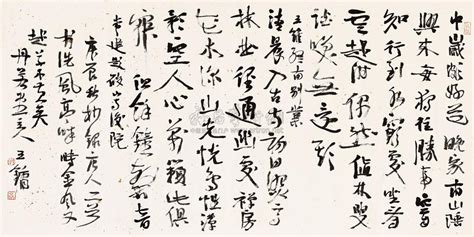 中歲頗好道晚家南山陲
興來每獨往勝事空自
知行到水窮處坐看
雲起時偶然值林叟
談笑無還期
王維終南別業
清晨入古寺初日照高
林竹徑通幽處禪房
花木深山光悅鳥性潭
影空人心萬籟此俱
寂但餘鐘磬音
常建題破山寺後院
庚辰秋抄錄唐人二首
王鏞